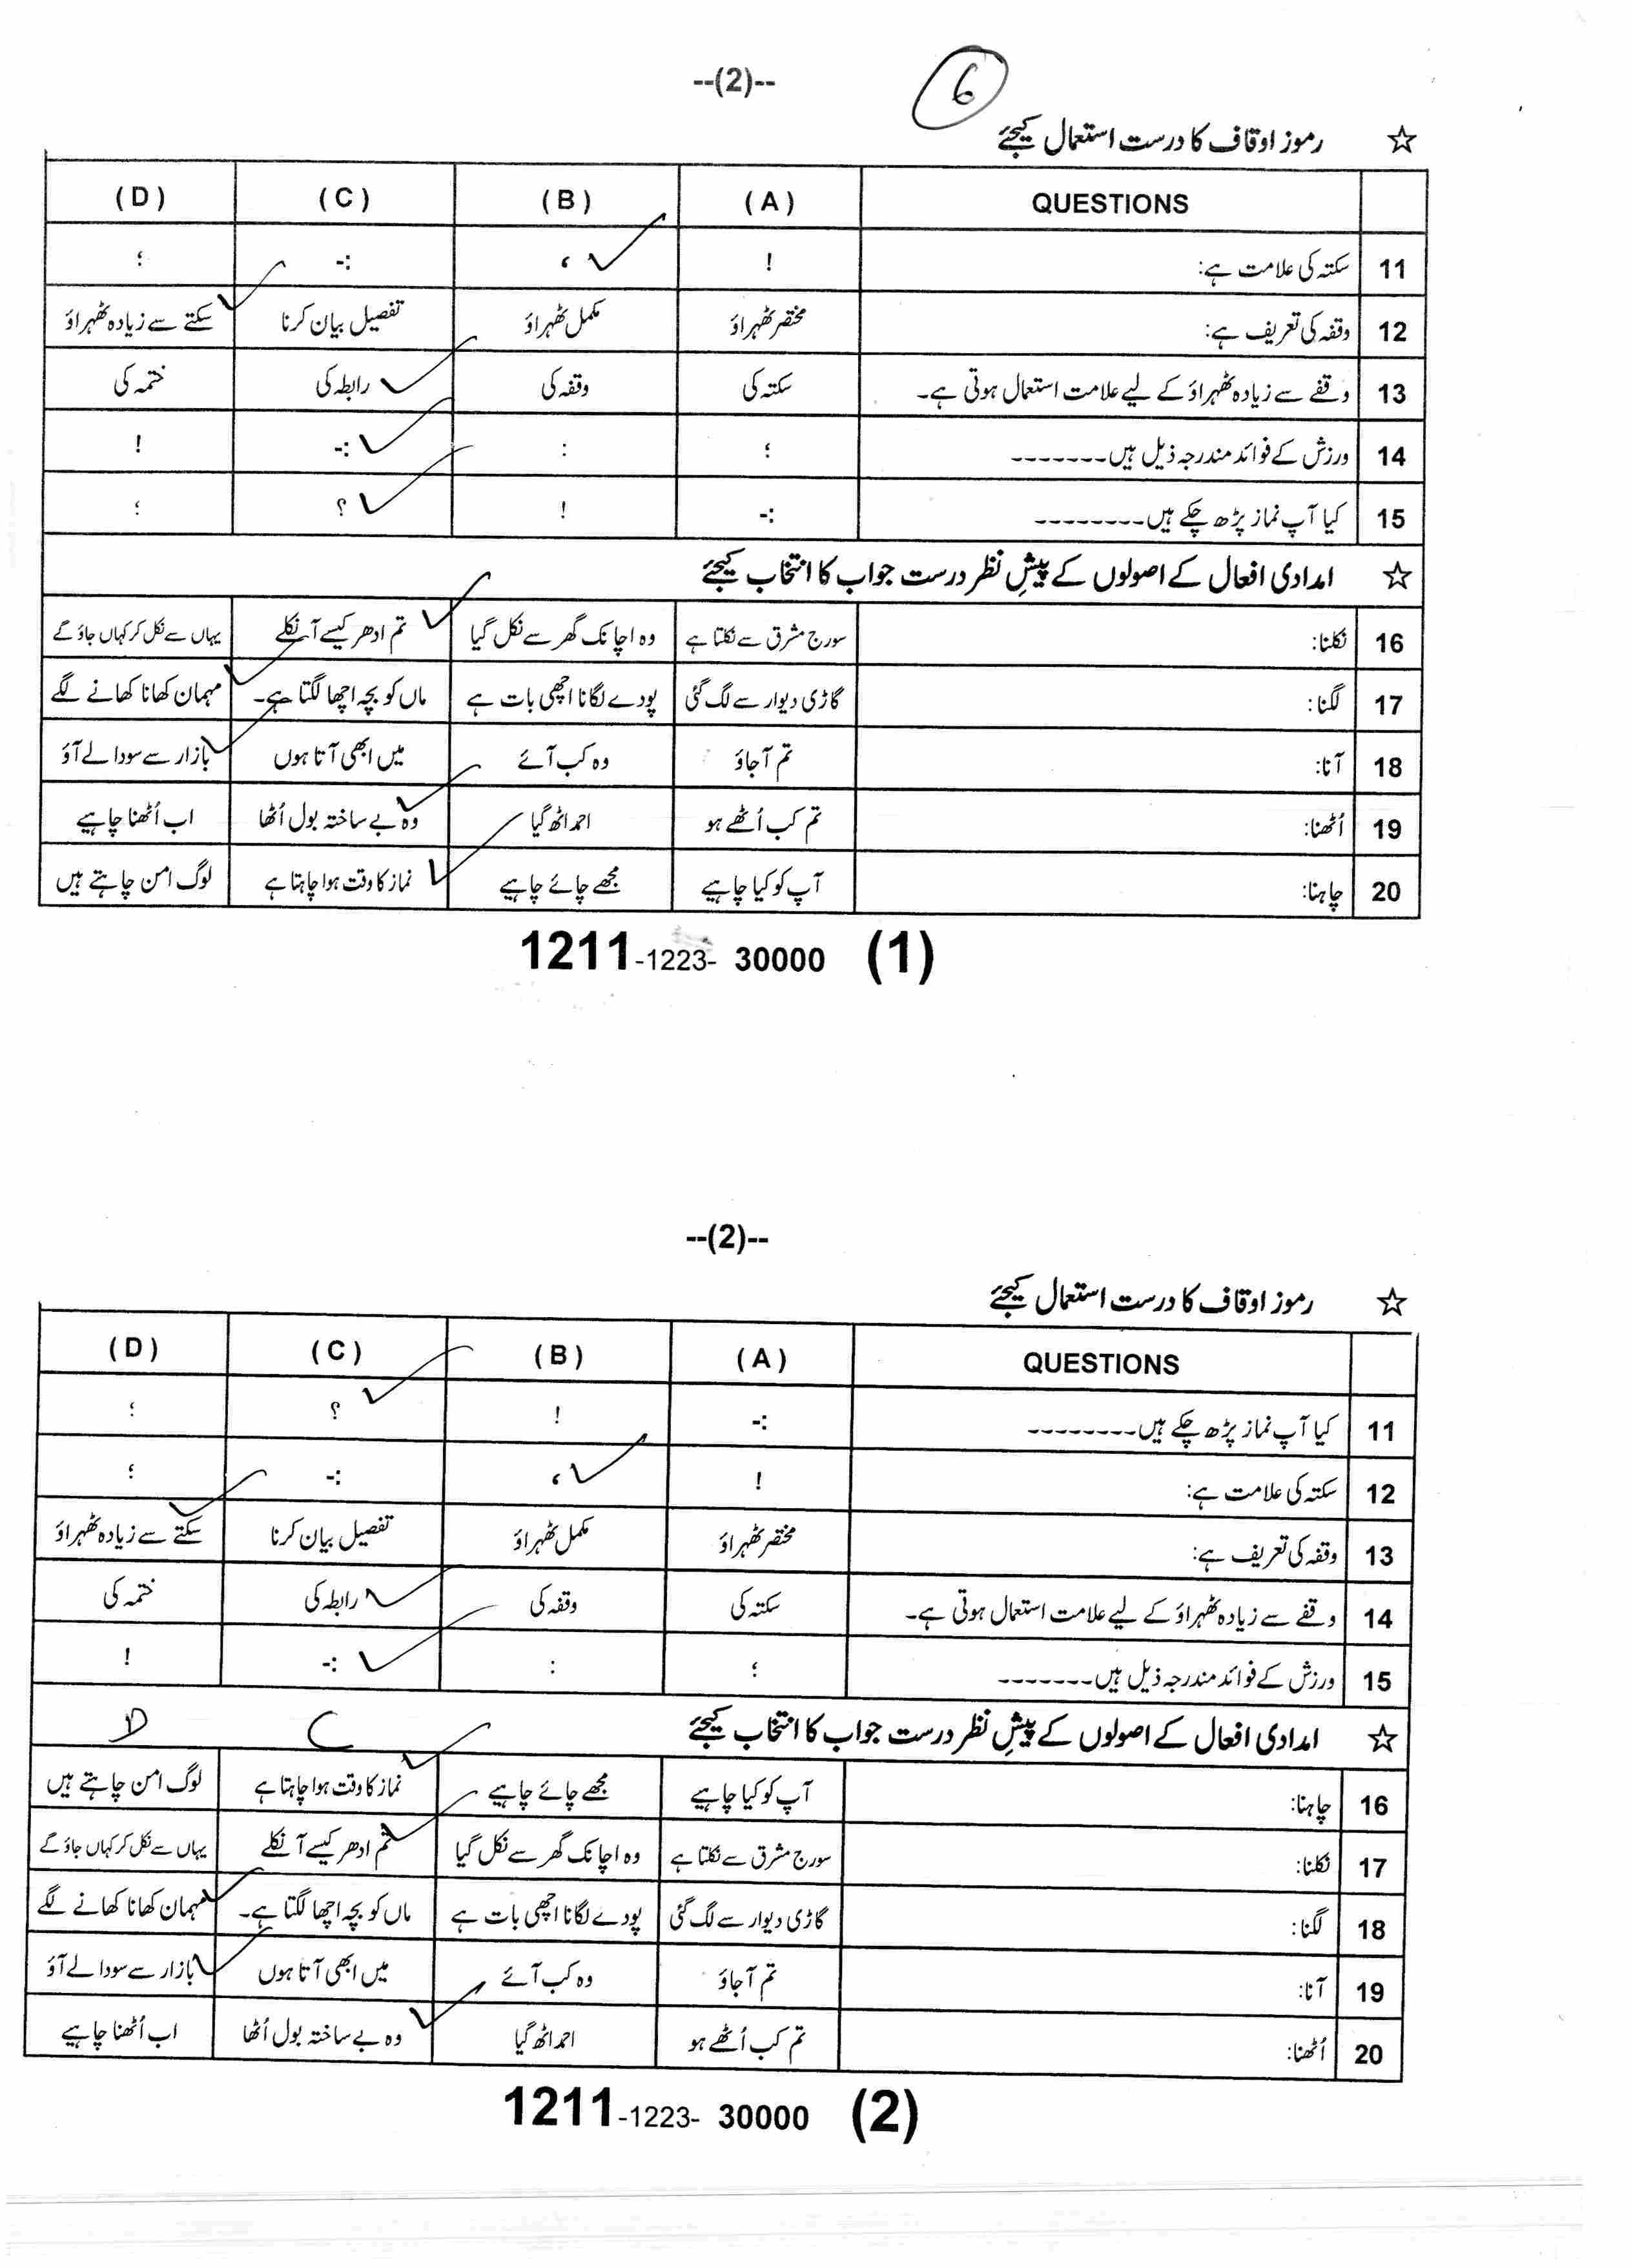 --(2)--
6
☆ رموز اوقاف کا درست استعمال کیجئے
QUESTIONS (A) (B) (C) (D)
11 سکتہ کی علامت ہے: ! ، :- ؛
12 وقفہ کی تعریف ہے: مختصر ٹھہراؤ مکمل ٹھہراؤ تفصیل بیان کرنا سکتے سے زیادہ ٹھہراؤ
13 وقفے سے زیادہ ٹھہراؤ کے لیے علامت استعمال ہوتی ہے۔ سکتہ کی وقفہ کی رابطہ کی ختمہ کی
14 ورزش کے فوائد مندرجہ ذیل ہیں-------- ؛ : :- !
15 کیا آپ نماز پڑھ چکے ہیں--------- :- ! ؟ ؛
☆ امدادی افعال کے اصولوں کے پیشِ نظر درست جواب کا انتخاب کیجئے
16 نکلنا: سورج مشرق سے نکلتا ہے وہ اچانک گھر سے نکل گیا تم ادھر کیسے آ نکلے یہاں سے نکل کر کہاں جاؤ گے
17 لگنا: گاڑی دیوار سے لگ گئی پودے لگانا اچھی بات ہے ماں کو بچہ اچھا لگتا ہے۔ مہمان کھانا کھانے لگے
18 آنا: تم آجاؤ وہ کب آئے میں ابھی آتا ہوں بازار سے سودا لے آؤ
19 اُٹھنا: تم کب اُٹھے ہو احمد اٹھ گیا وہ بے ساختہ بول اُٹھا اب اُٹھنا چاہیے
20 چاہنا: آپ کو کیا چاہیے مجھے چائے چاہیے نماز کا وقت ہوا چاہتا ہے لوگ امن چاہتے ہیں
1211-1223- 30000 (1)
--(2)--
☆ رموز اوقاف کا درست استعمال کیجئے
QUESTIONS (A) (B) (C) (D)
11 کیا آپ نماز پڑھ چکے ہیں--------- :- ! ؟ ؛
12 سکتہ کی علامت ہے: ! ، :- ؛
13 وقفہ کی تعریف ہے: مختصر ٹھہراؤ مکمل ٹھہراؤ تفصیل بیان کرنا سکتے سے زیادہ ٹھہراؤ
14 وقفے سے زیادہ ٹھہراؤ کے لیے علامت استعمال ہوتی ہے۔ سکتہ کی وقفہ کی رابطہ کی ختمہ کی
15 ورزش کے فوائد مندرجہ ذیل ہیں-------- ؛ : :- !
☆ امدادی افعال کے اصولوں کے پیشِ نظر درست جواب کا انتخاب کیجئے C D
16 چاہنا: آپ کو کیا چاہیے مجھے چائے چاہیے نماز کا وقت ہوا چاہتا ہے لوگ امن چاہتے ہیں
17 نکلنا: سورج مشرق سے نکلتا ہے وہ اچانک گھر سے نکل گیا تم ادھر کیسے آ نکلے یہاں سے نکل کر کہاں جاؤ گے
18 لگنا: گاڑی دیوار سے لگ گئی پودے لگانا اچھی بات ہے ماں کو بچہ اچھا لگتا ہے۔ مہمان کھانا کھانے لگے
19 آنا: تم آجاؤ وہ کب آئے میں ابھی آتا ہوں بازار سے سودا لے آؤ
20 اُٹھنا: تم کب اُٹھے ہو احمد اٹھ گیا وہ بے ساختہ بول اُٹھا اب اُٹھنا چاہیے
1211-1223- 30000 (2)